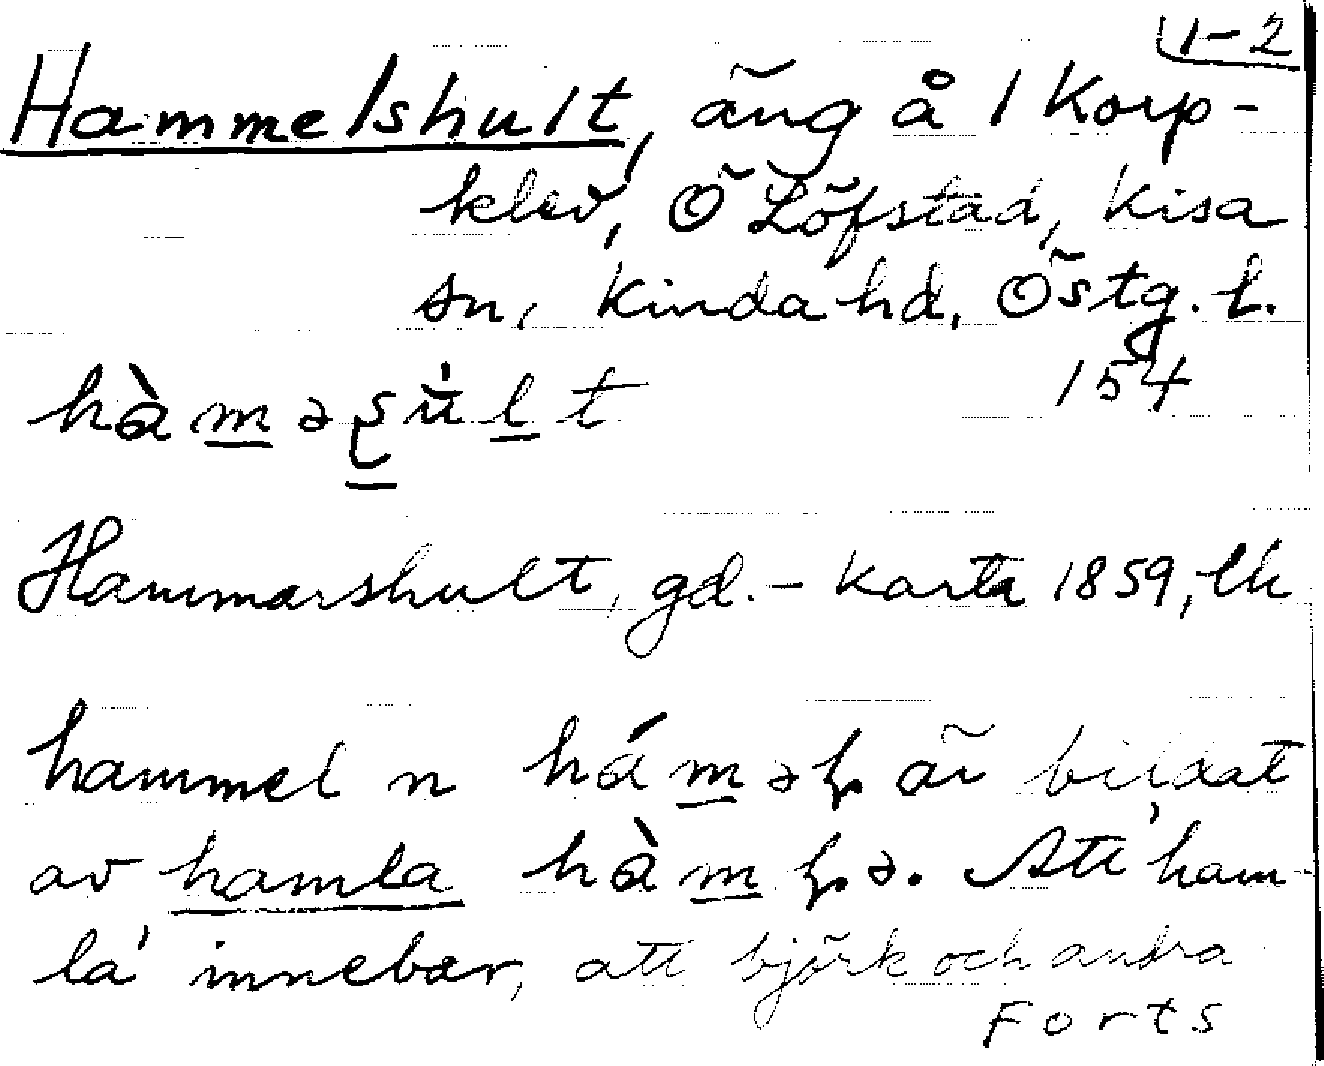 1-2
Hammelshult, äng å 1 Korp-
klev, Ö Löfstad, Kisa
sn, Kinda hd, Östg. l.
154
Hammarshult, gd. - Karta 1859, lk
hammel n är bildat
av hamla Att 'ham-
la' innebär, att björk och andra
Forts